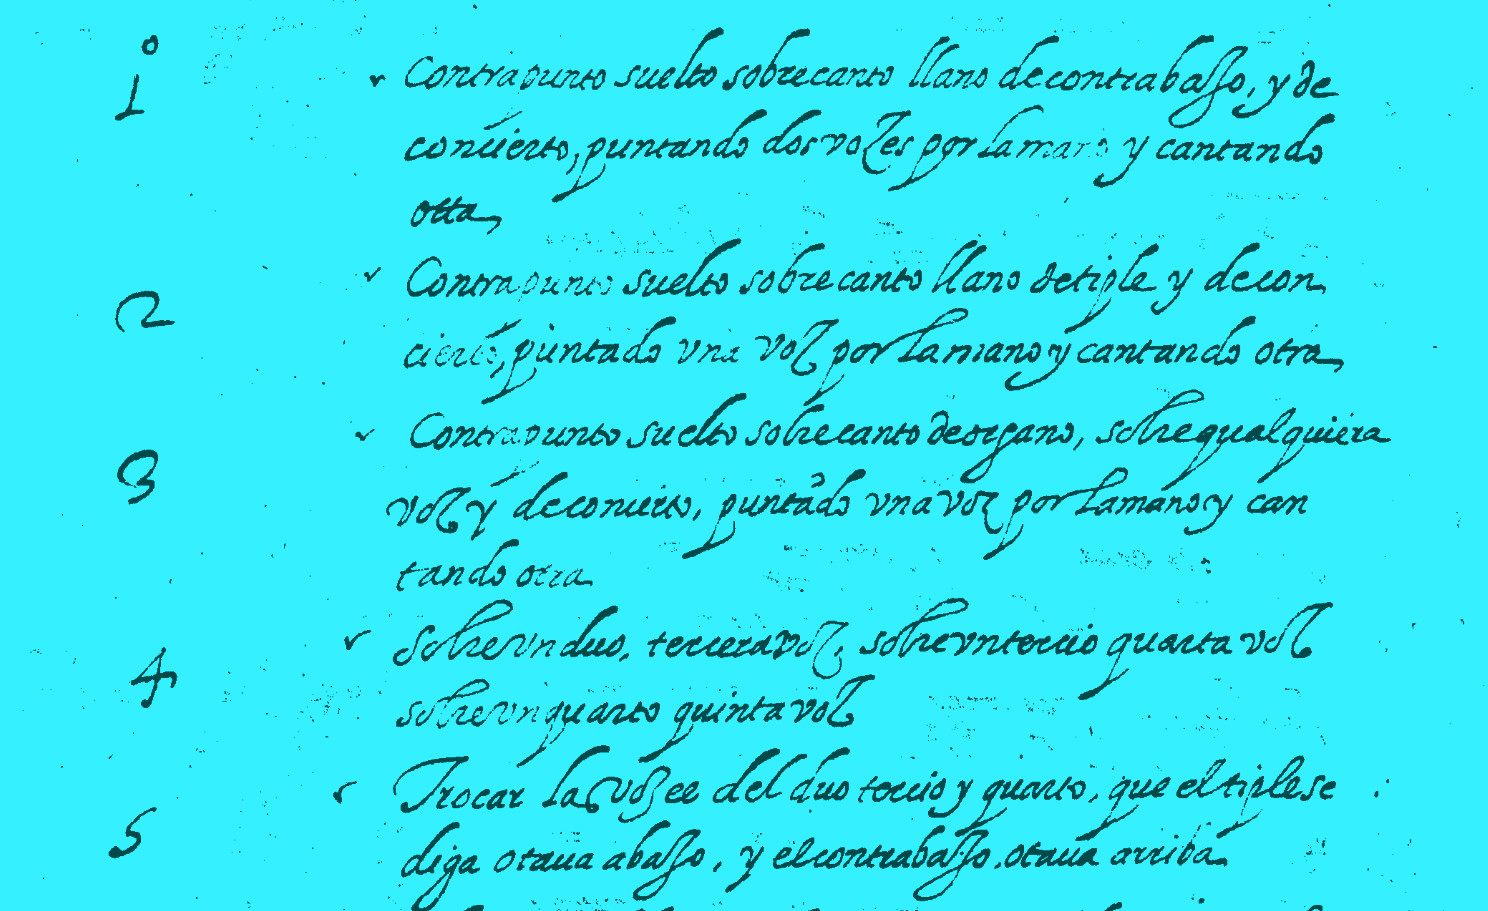 1º Contrapunto suelto sobre canto llano de contrabasso, y de
concierto, puntando dos vozes por la mano y cantando
otta
2 Contrapunto suelto sobre canto llano de tiple y de con
cierto, puntado vna voz por la mano y cantando otra
3 Contrapunto suelto sobre canto de organo, sobre qualquiera
voz y de concierto, puntãdo vna voz por la mano y can
tando otra
4 Sobre vn duo, tercera voz, sobre vn tercio quarta voz
sobre vn quarto quinta voz
5 Trocar las vozes del duo tercio y quarto, que el tiple se
diga otaua abasso, y el contrabasso. otaua arriba